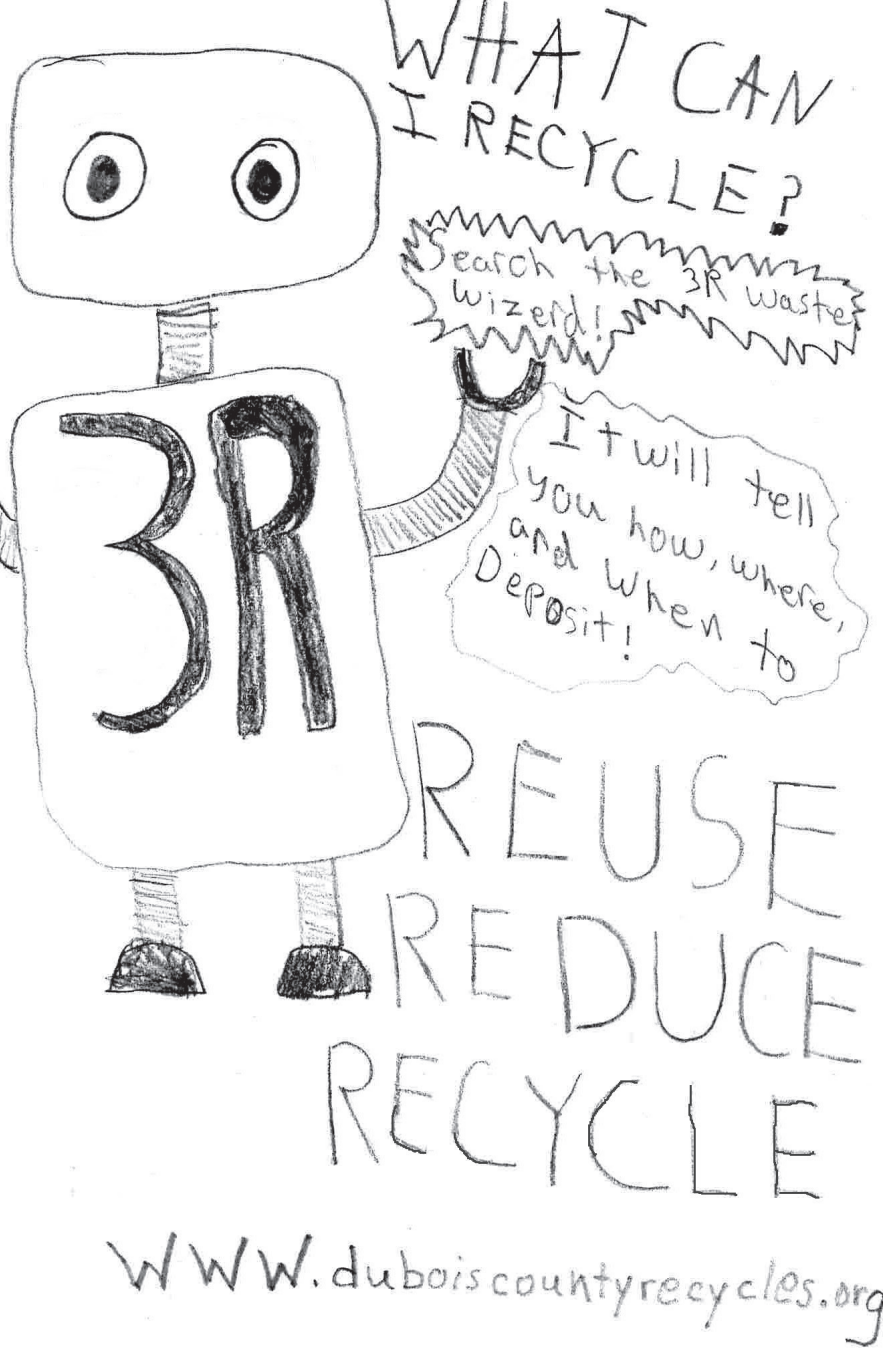 WHAT CAN
I RECYCLE?
Search the 3R waste
wizerd!
It will tell
you how, where,
and when to
Deposit!
3R
REUSE
REDUCE
RECYCLE
www.duboiscountyrecycles.org